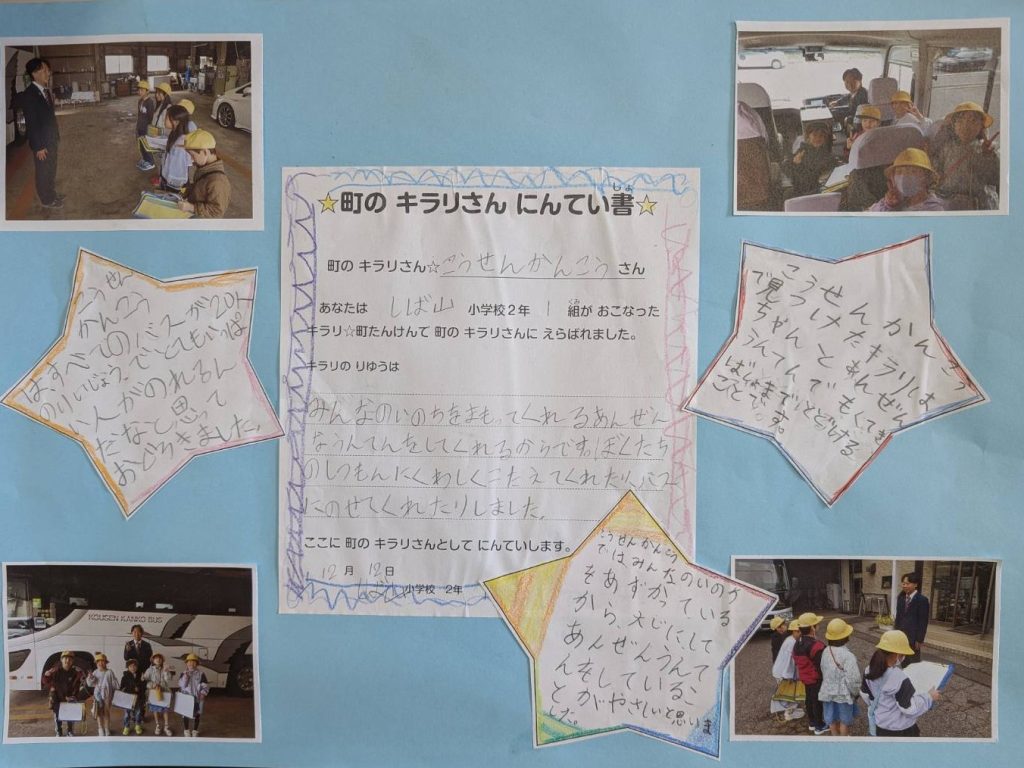 ☆町の キラリさん にんてい書☆
しょ
町の キラリさん☆こうせんかんこう さん
あなたは しば山 小学校2年 1 組が おこなった
くみ
キラリ☆町たんけんで 町の キラリさんに えらばれました。
キラリの りゆうは
みんなのいのちをまもってくれるあんぜん
なうんてんをしてくれるからです。ぼくたち
のしつもんにくわしくこたえてくれたり、バス
にのせてくれたりしました。
ここに 町の キラリさんとして にんていします。
12月 12日
しば山 小学校 2年
こうせん
かんこう
はすべてのバスが20人
のりいじょう。でとてもいっぱ
い人がのれるん
だなと思って
おどろきました。
こうせんかんこう
で見つけたキラリは
ちゃんとあんぜん
うんてんでもくてき
ばしょまでとどける
ことです。
こうせんかんこう
ではみんなのいのち
をあずかっている
から、大じにして
あんぜんうんて
んをしているこ
とがやさしいと思いま
した。
KOUSEN KANKO BUS